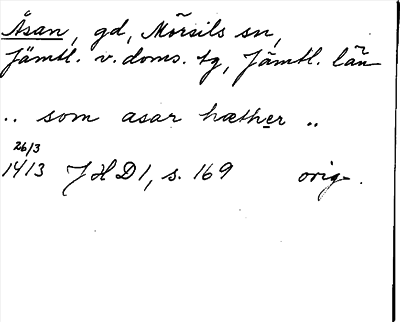 Åsan, gd, Mörsils sn,
Jämtl. v. doms. tg, Jämtl. län
.. som asar hæther ..
26/3
1413 JHD 1, s. 169 orig.